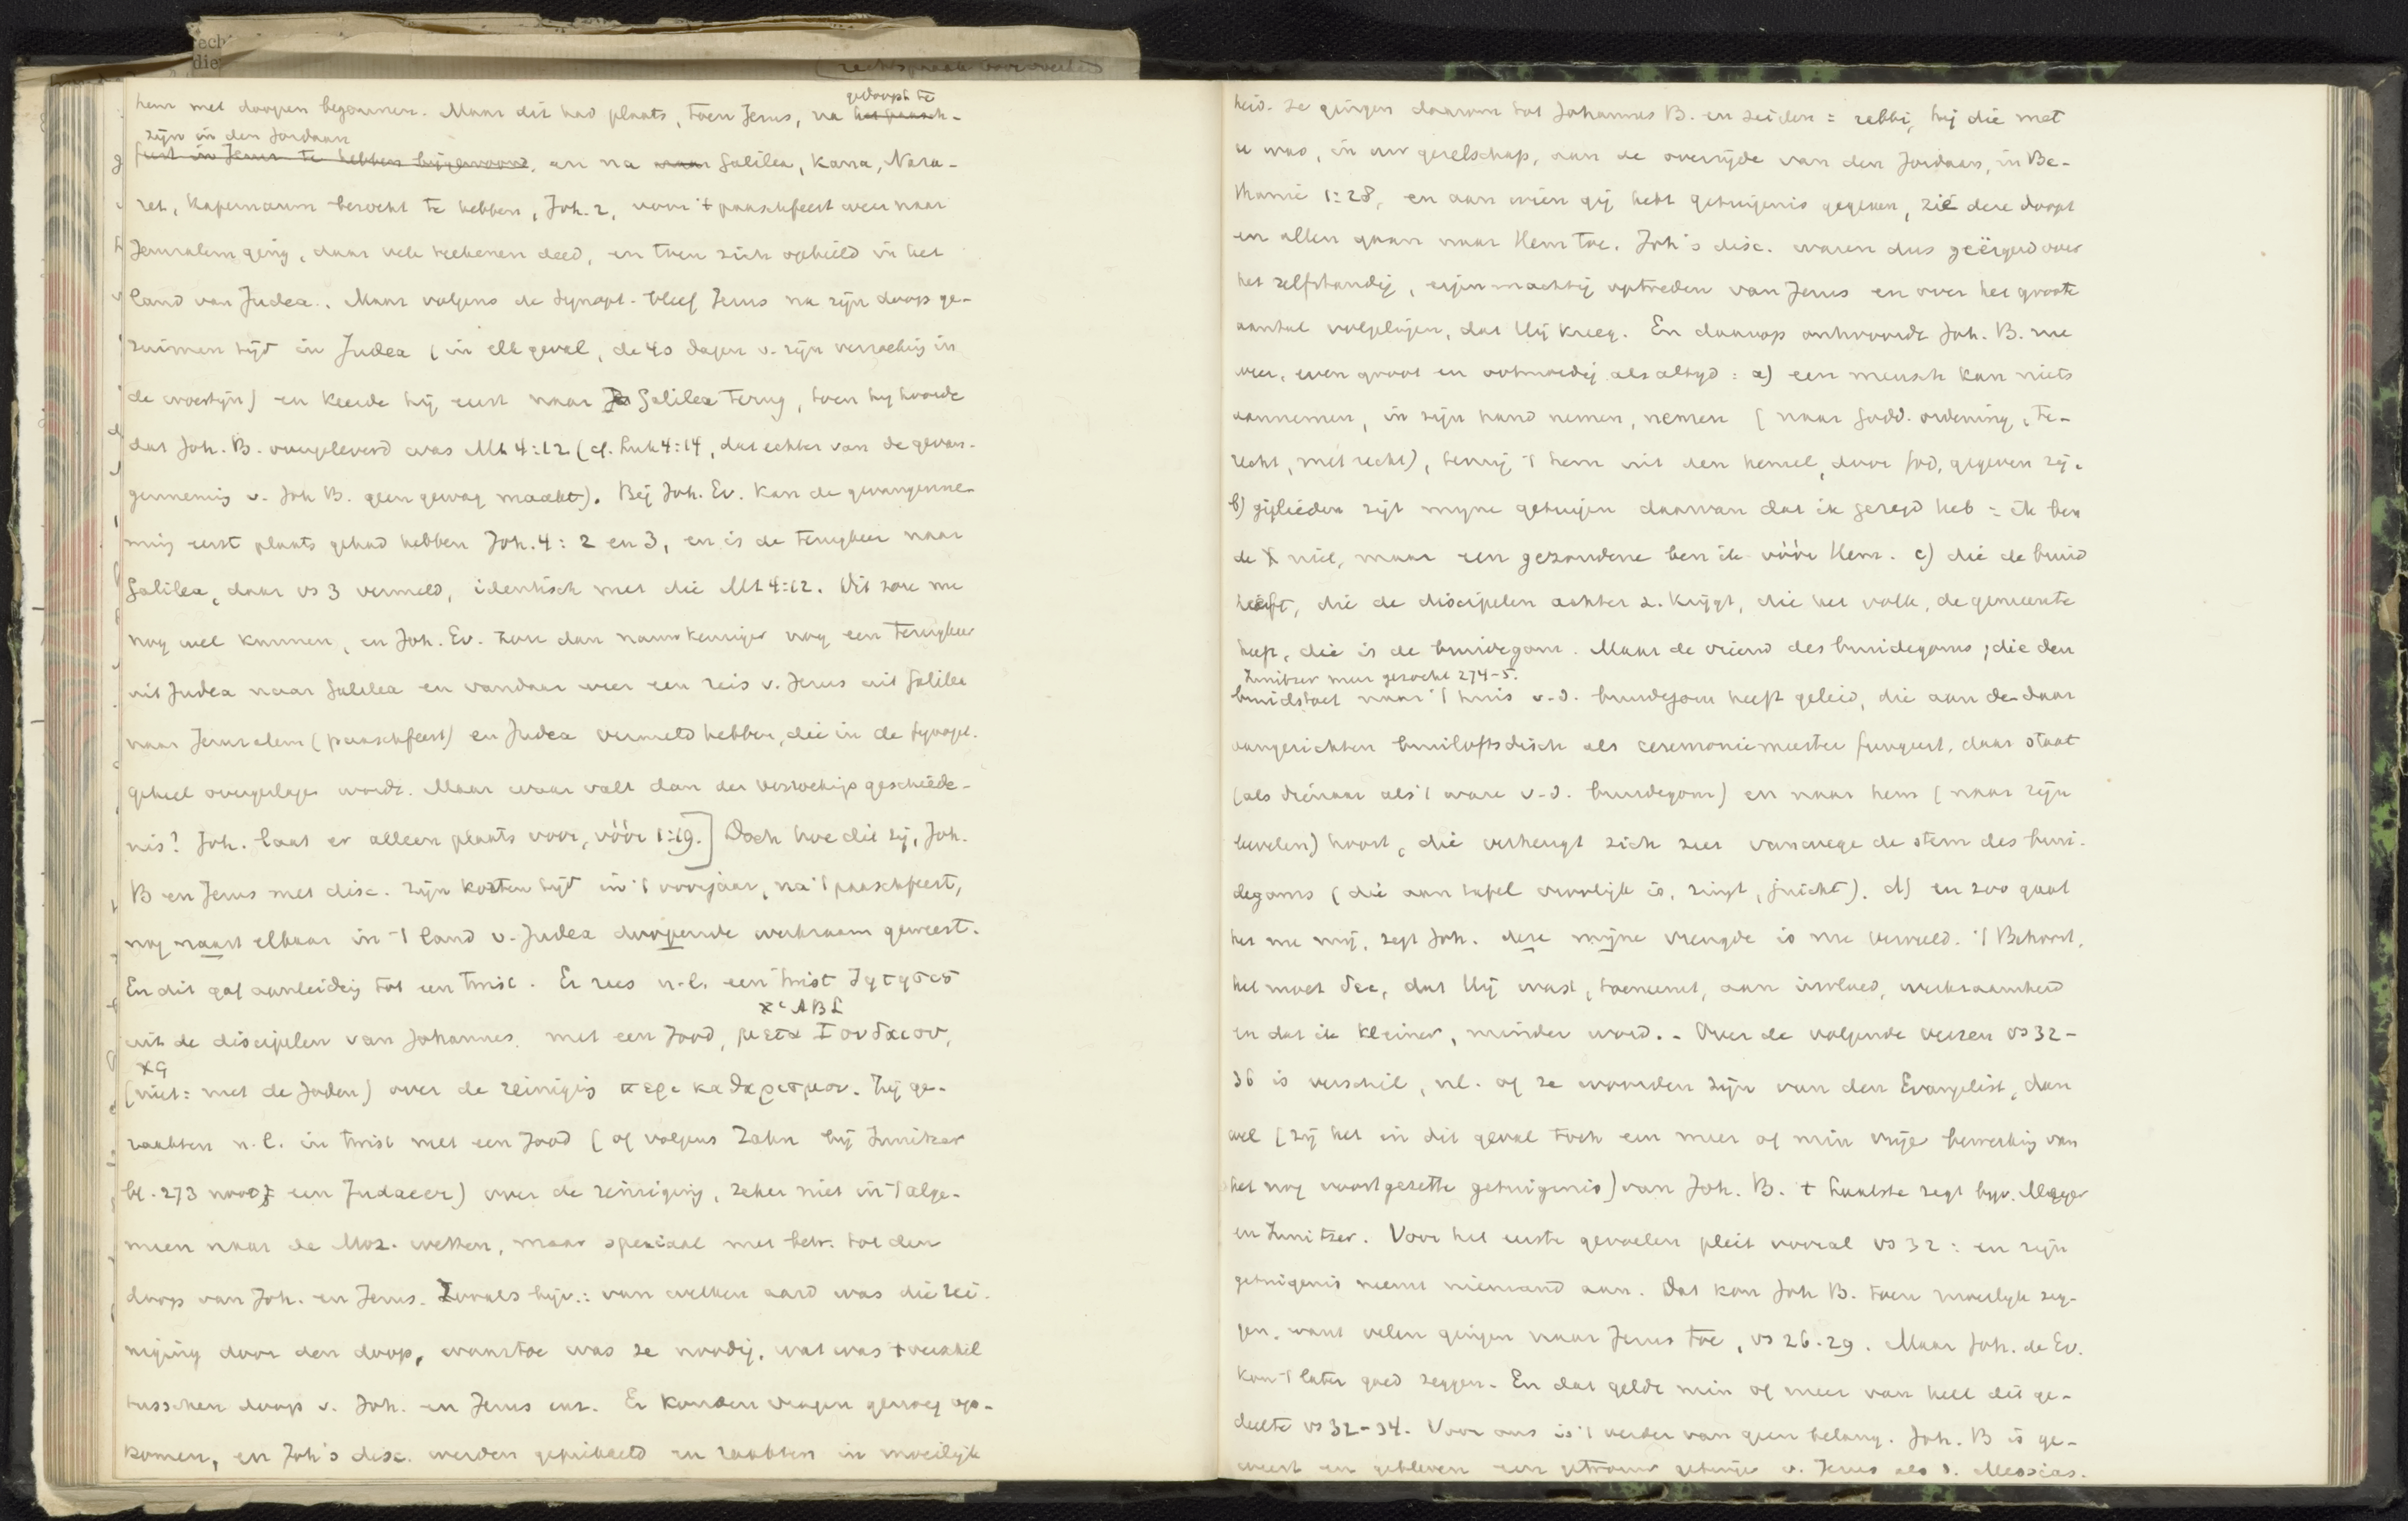 hem met doopen begonnen. Maar dit had plaats, toen Jezus, na gedoopt te
zijn in den Jordaan en na Galilea, Kana, Naza-
ret, Kapernaum bezocht te hebben, Joh. 2, voor 't paaschfeest weer naar
Jeruzalem ging, daar vele teekenen deed, en toen zich ophield in het
land van Judea. Maar volgens de synopt. bleef Jezus na zijn doop ge-
ruimen tijd in Judea (in elk geval, de 40 dagen v. zijn verzoeking in
de woestijn) en keerde hij eerst naar Galilea terug, toen hij hoorde
dat Joh. B. overgeleverd was Mt 4:12 (cf. Luk 4:14, dat echter van de gevan-
genneming v. Joh B. geen gewag maakt). Bij Joh. Ev. kan de gevangenne-
ming eerst plaats gehad hebben Joh. 4: 2 en 3, en is de terugkeer naar
Galilea, daar vs 3 vermeld, identisch met die Mt 4:12. Dit zou nu
nog wel kunnen, en Joh. Ev. zou dan nauwkeuriger nog een terugkeer
uit Judea naar Galilea en vandaar weer een reis v. Jezus uit Galilea
naar Jeruzalem (paaschfeest) en Judea vermeld hebben, die in de synopt.
geheel overgeslagen wordt. Maar waar valt dan de verzoekingsgeschiede-
nis? Joh. laat er alleen plaats voor, vóór 1:19.] Doch hoe dit zij, Joh.
B en Jezus met disc. zijn korten tijd in 't voorjaar, na 't paaschfeest,
nog naast elkaar in 't land v. Judea doopende werkzaam geweest.
En dit gaf aanleiding tot een twist. Er rees n.l. een twist ζητησις
א c A B L
uit de discipelen van Johannes, met een Jood, μετα Ιουδαιου,
א G
(niet: met de Joden) over de reiniging περι καθαρισμου. Zij ge-
raakten n.l. in twist met een Jood (of volgens Zahn bij Zwitzer
bl. 273 noot een Judaeer) over de reiniging, zeker niet in 't alge-
meen naar de Moz. wetten, maar speciaal met betr. tot den
doop van Joh. en Jezus. Zooals bijv.: van welken aard was die rei-
niging door den doop, waartoe was ze noodig, wat was 't verschil
tusschen doop v. Joh. en Jezus enz. Er konden vragen genoeg op-
komen, en Joh's disc. werden geprikkeld en raakten in moeilijk
heid. Ze gingen daarom tot Johannes B. en zeiden: rabbi, hij die met
u was, in uw gezelschap, aan de overzijde van den Jordaan, in Be-
thanië 1:28, en aan wien gij hebt getuigenis gegeven, zië deze doopt
en allen gaan naar Hem toe. Joh's disc. waren dus geërgerd over
het zelfstandig, eigenmachtig optreden van Jezus en over het groote
aantal volgelingen, dat Hij kreeg. En daarop antwoordt Joh. B. nu
weer, even groot en ootmoedig als altijd: a) een mensch kan niets
aannemen, in zijn hand nemen, nemen (naar Godd. ordening, te-
recht, met recht), tenzij 't hem uit den hemel, door God, gegeven zij.
b) gijlieden zijt mijne getuigen daarvan dat ik gezegd heb: ik ben
de X niet, maar een gezondene ben ik vóór Hem. c) die de bruid
heeft, die de discipelen achter z. krijgt, die het volk, de gemeente
heeft, die is de bruidegom. Maar de vriend des bruidegoms, die den
bruidstoet naar 't huis v.d. bruidegom heeft geleid, die aan de daar
aangerichten bruiloftsdisch als ceremoniemeester fungeert, daar staat
(als dienaar als 't ware v.d. bruidegom) en naar hem (naar zijn
bevelen) hoort, die verheugt zich zeer vanwege de stem des brui-
degoms (die aan tafel vroolijk is, zingt, juicht). d) en zoo gaat
het nu mij, zegt Joh. deze mijne vreugde is nu vervuld. 't Behoort,
het moet δει, dat Hij wast, toeneemt, aan invloed, werkzaamheid
en dat ik kleiner, minder word. - Over de volgende verzen vs 32-
36 is verschil, nl. of ze woorden zijn van den Evangelist, dan
wel (zij het in dit geval toch een meer of min vrije bewerking van
het nog voortgezette getuigenis) van Joh. B. 't Laatste zegt bijv. Meyer
en Zwitzer. Voor het eerste gevoelen pleit vooral vs 32: en zijn
getuigenis neemt niemand aan. Dat kon Joh B. toen moeilijk zeg-
gen, want velen gingen naar Jezus toe, vs 26.29. Maar Joh. de Ev.
kon 't later goed zeggen. En dat geldt min of meer van heel dit ge-
deelte vs 32-34. Voor ons is 't verder van geen belang. Joh. B is ge-
weest en gebleven een getrouw getuige v. Jezus als d. Messias.